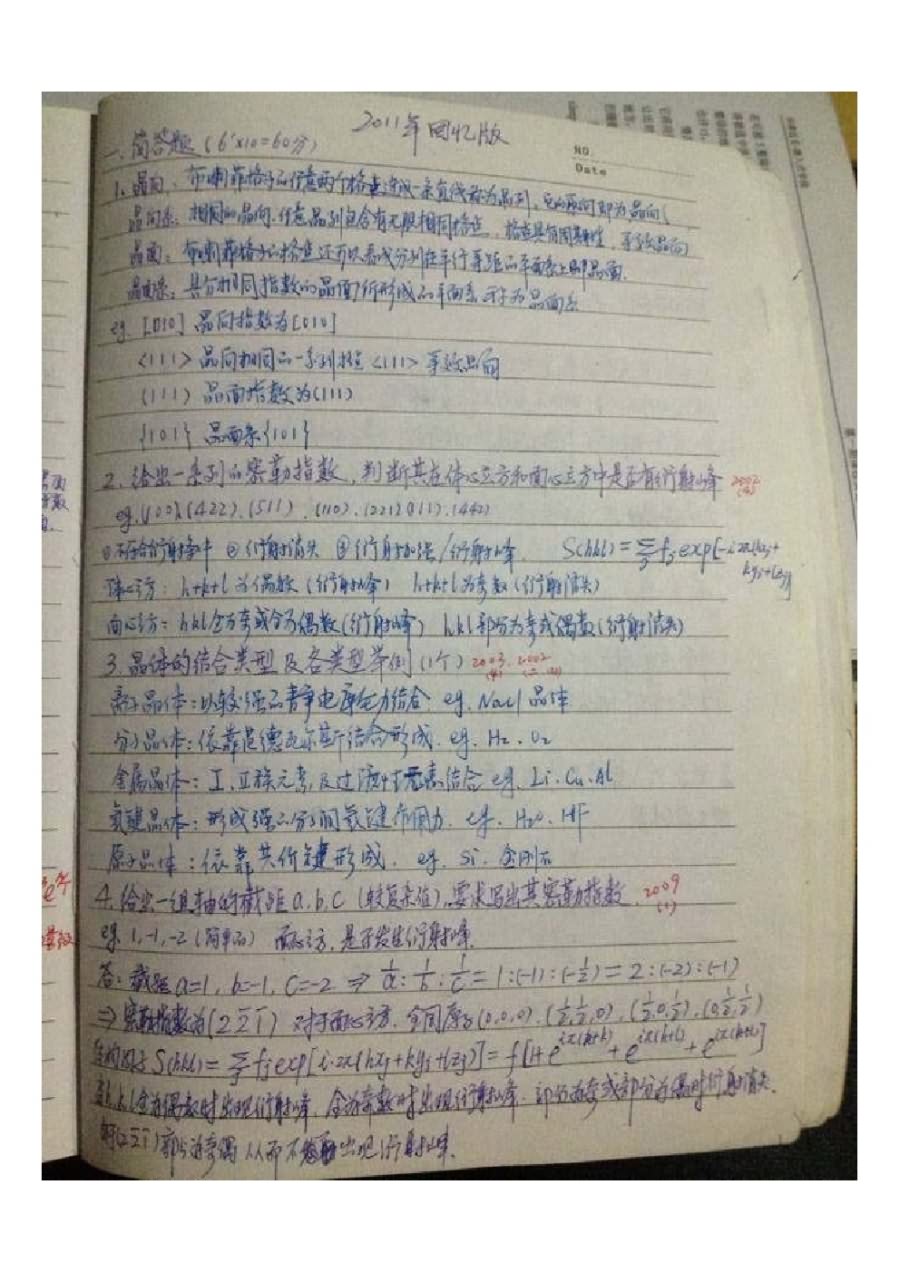 2011年回忆版
NO.
Date
一、简答题(6'×10=60分)
1. 晶向:布喇菲格子的任意两个格点连成一条直线称为晶列,它的取向即为晶向(
晶向系:相同的晶向,任意晶列包含有无限相同格点,格点具有周期性,等效晶向
晶面:布喇菲格子的格点还可以看成分列在平行等距的平面系上即晶面.
晶面系:具有相同指数的晶面所形成的平面系称为晶面系
eg. [010] 晶向指数为[010]
<111> 晶向相同的一系列 <111> 等效晶向
(111) 晶面指数为(111)
{101} 晶面系{101}
2. 给出一系列的密勒指数,判断其在体心立方和面心立方中是否有衍射峰 2002
eg. (100) (422). (511). (110). (221) (111). (442)
①不符合衍射条件 ②衍射消失 ③衍射加强/衍射峰. S(hkl)=∑fj exp[-i2π(hxj+kyj+lzj)]
体心立方: h+k+l为偶数(衍射峰) h+k+l为奇数(衍射消失)
面心立方: hkl全为奇或全为偶数(衍射峰) hkl部分为奇或偶数(衍射消失)
3. 晶体的结合类型及各类型举例(1个) 2003. 2002
离子晶体:以较强的静电库仑力结合. eg. NaCl晶体
分子晶体:依靠范德瓦尔斯结合形成. eg. H₂. O₂
金属晶体:I、II族元素及过渡元素结合 eg. Li. Cu. Al
氢键晶体:形成强的分子间氢键作用力. eg. H₂O. HF
原子晶体:依靠共价键形成. eg. Si. 金刚石
4. 给出一组轴的截距a.b.c(较复杂值),要求写出其密勒指数. 2009 (1)
eg. 1,-1,-2(简单的) 面心立方,是否发生衍射峰.
答:截距a=1, b=-1, c=-2 ⇒ 1/a:1/b:1/c=1:(-1):(-1/2)=2:(-2):(-1)
⇒密勒指数为(2 2̄ 1̄) 对于面心立方,全同原子(0,0,0).(1/2,1/2,0).(1/2,0,1/2).(0,1/2,1/2)
结构因子S(hkl)=∑fj exp[i·2π(hxj+kyj+lzj)]=f[1+e^{iπ(h+k)}+e^{iπ(h+l)}+e^{iπ(k+l)}]
当h.k.l全为偶数时出现衍射峰,全为奇数时出现衍射峰,部分为奇或部分为偶时衍射消失.
则(2 2̄ 1̄)部分为奇偶从而不出现衍射峰.